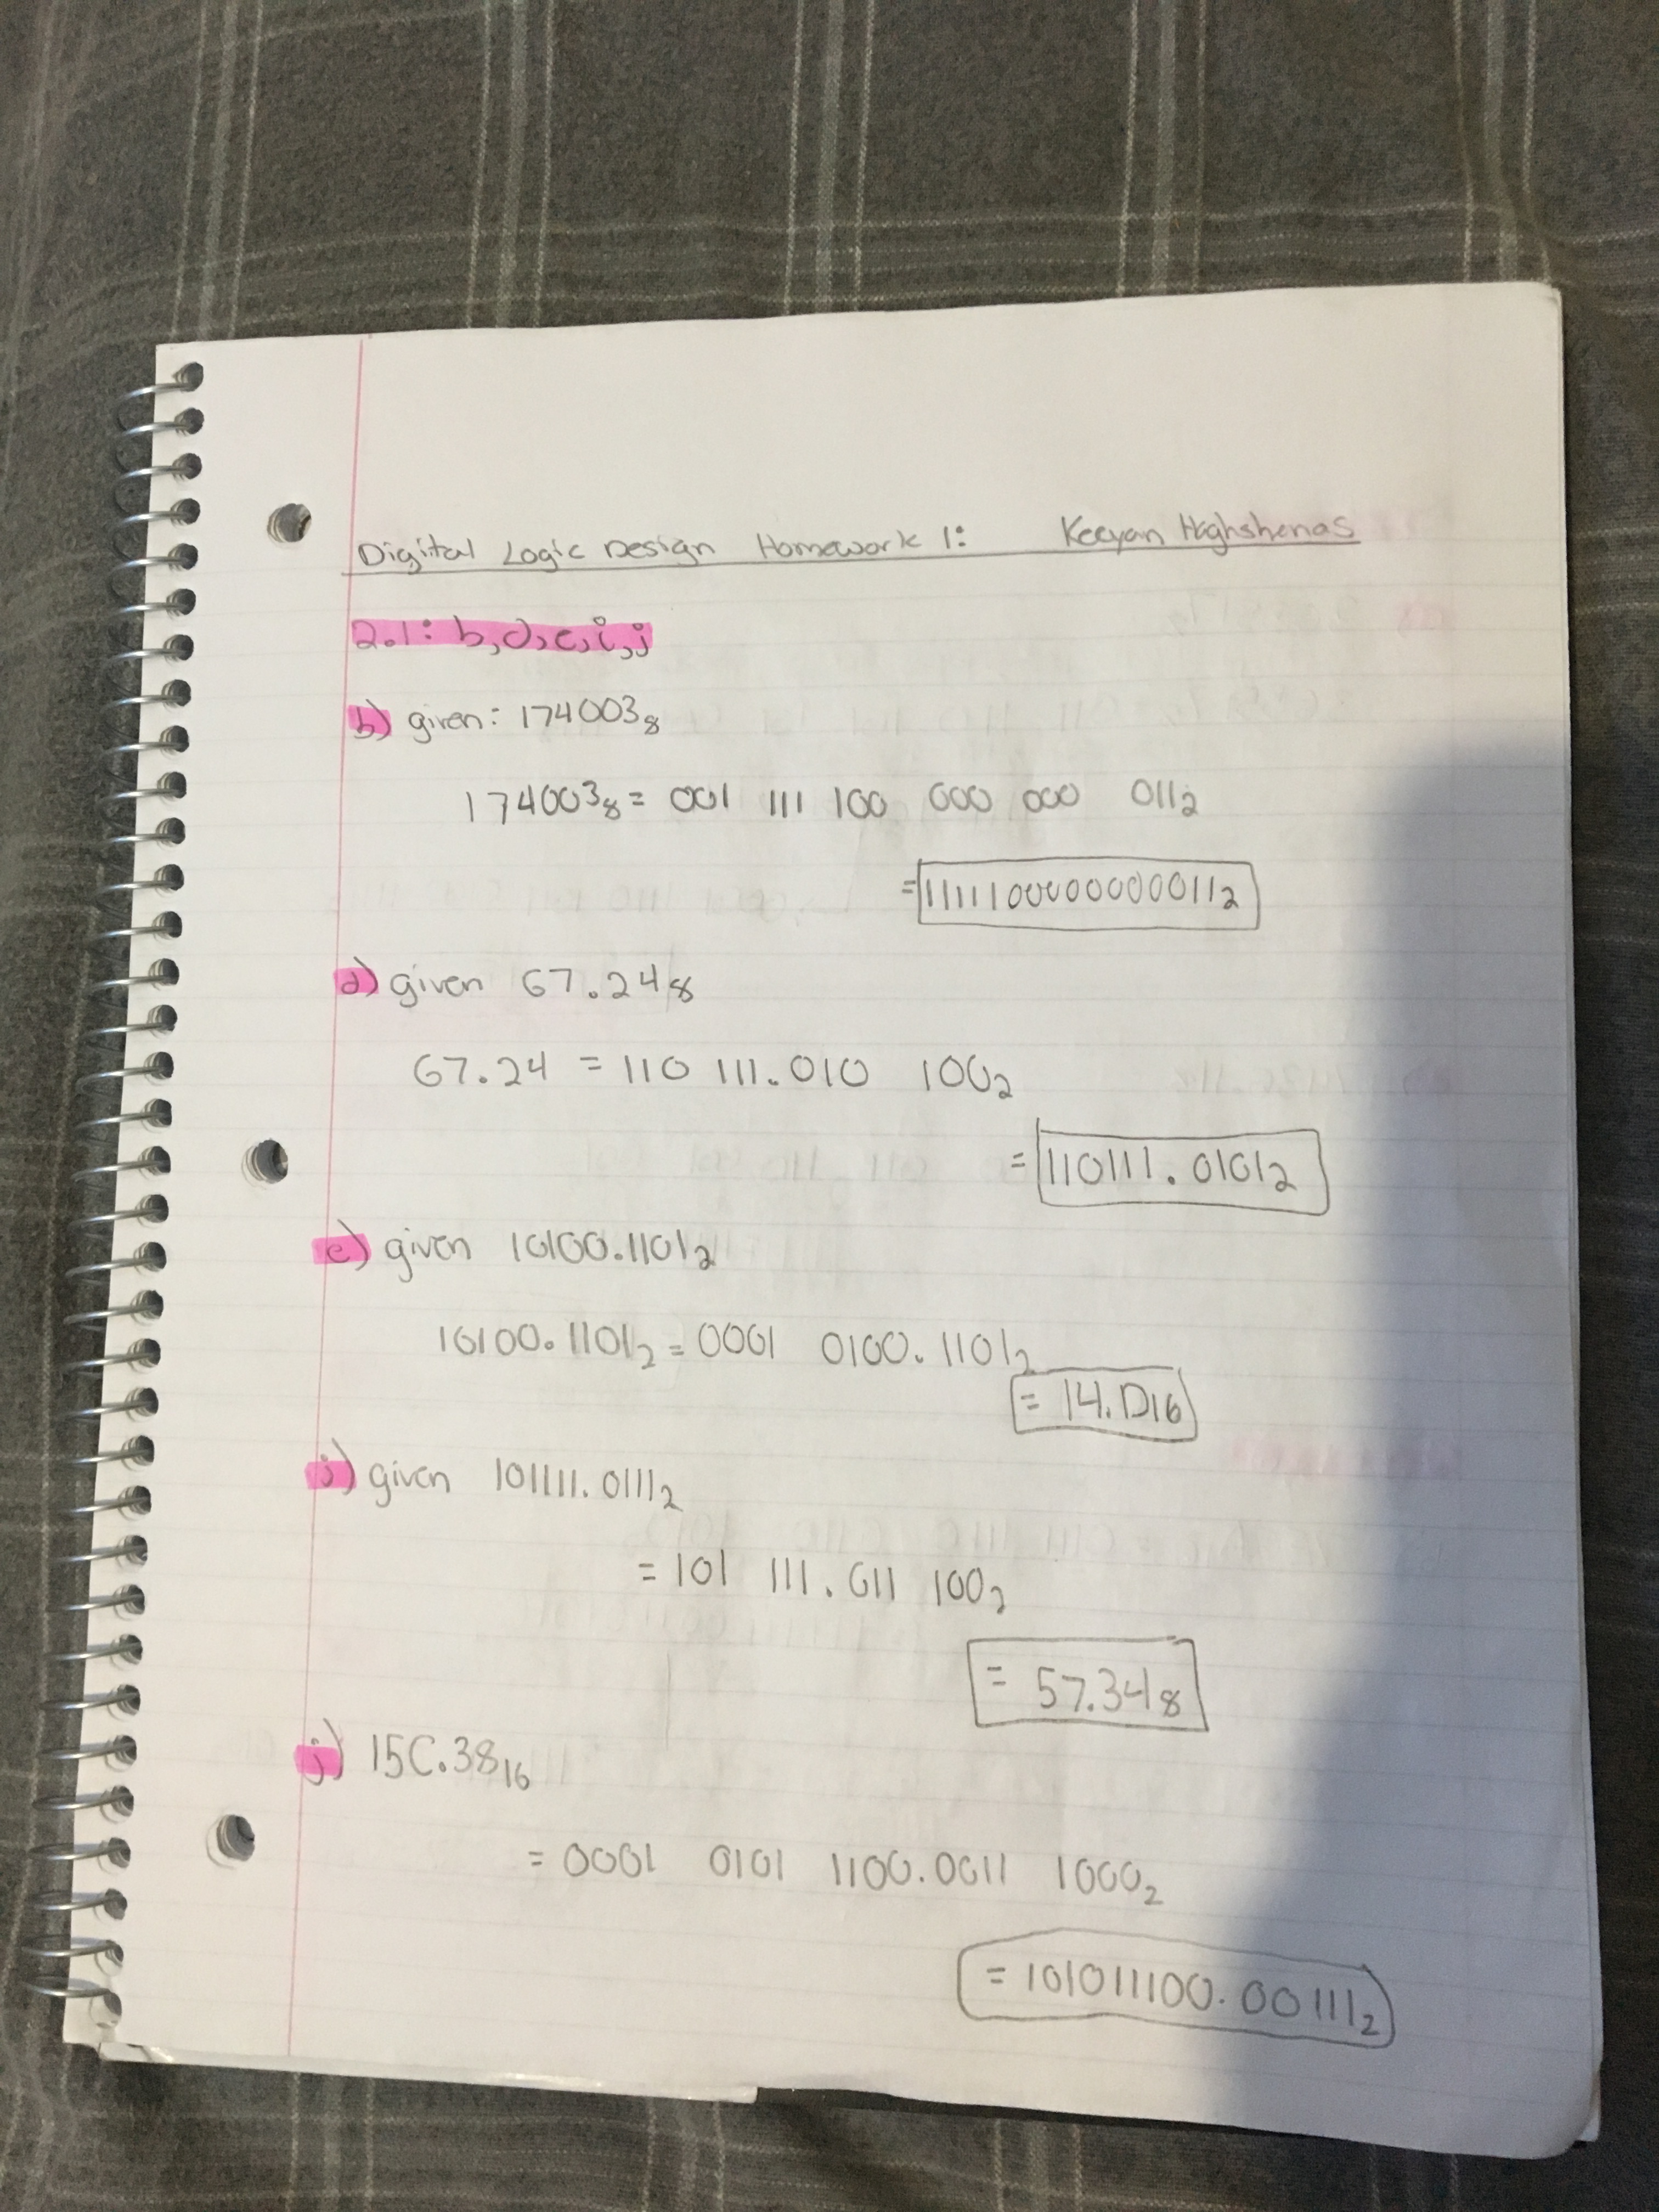 Digital Logic Design Homework 1: Keeyan Haghshenas
2.1: b,d,e,i,j
b) given: 174003₈
174003₈ = 001 111 100 000 000 011₂
= 1111100000000011₂
d) given 67.24₈
67.24 = 110 111.010 100₂
= 110111.0101₂
e) given 10100.1101₂
10100.1101₂ = 0001 0100.1101₂
= 14.D₁₆
i) given 101111.0111₂
= 101 111.011 100₂
= 57.34₈
j) 15C.38₁₆
= 0001 0101 1100.0011 1000₂
= 101011100.00111₂